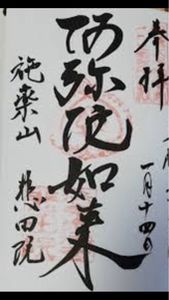 奉拝
一月十四日
阿弥陀如来
施薬山 悲田院